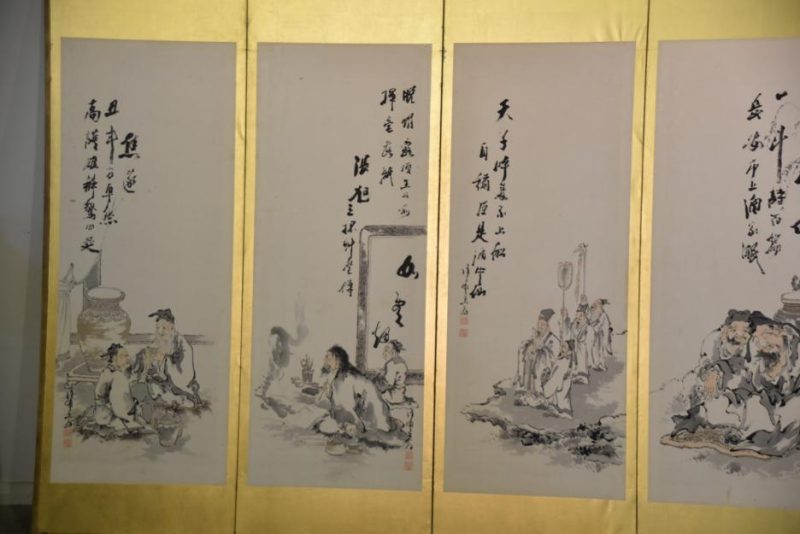 一斗詩百篇
長安市上酒家眠
天子呼来不上船
自稱臣是酒中仙
張旭三杯草聖傳
脱帽露頂王公前
揮毫落紙
如雲烟
焦遂
五斗方卓然
高談雄辯驚四筵